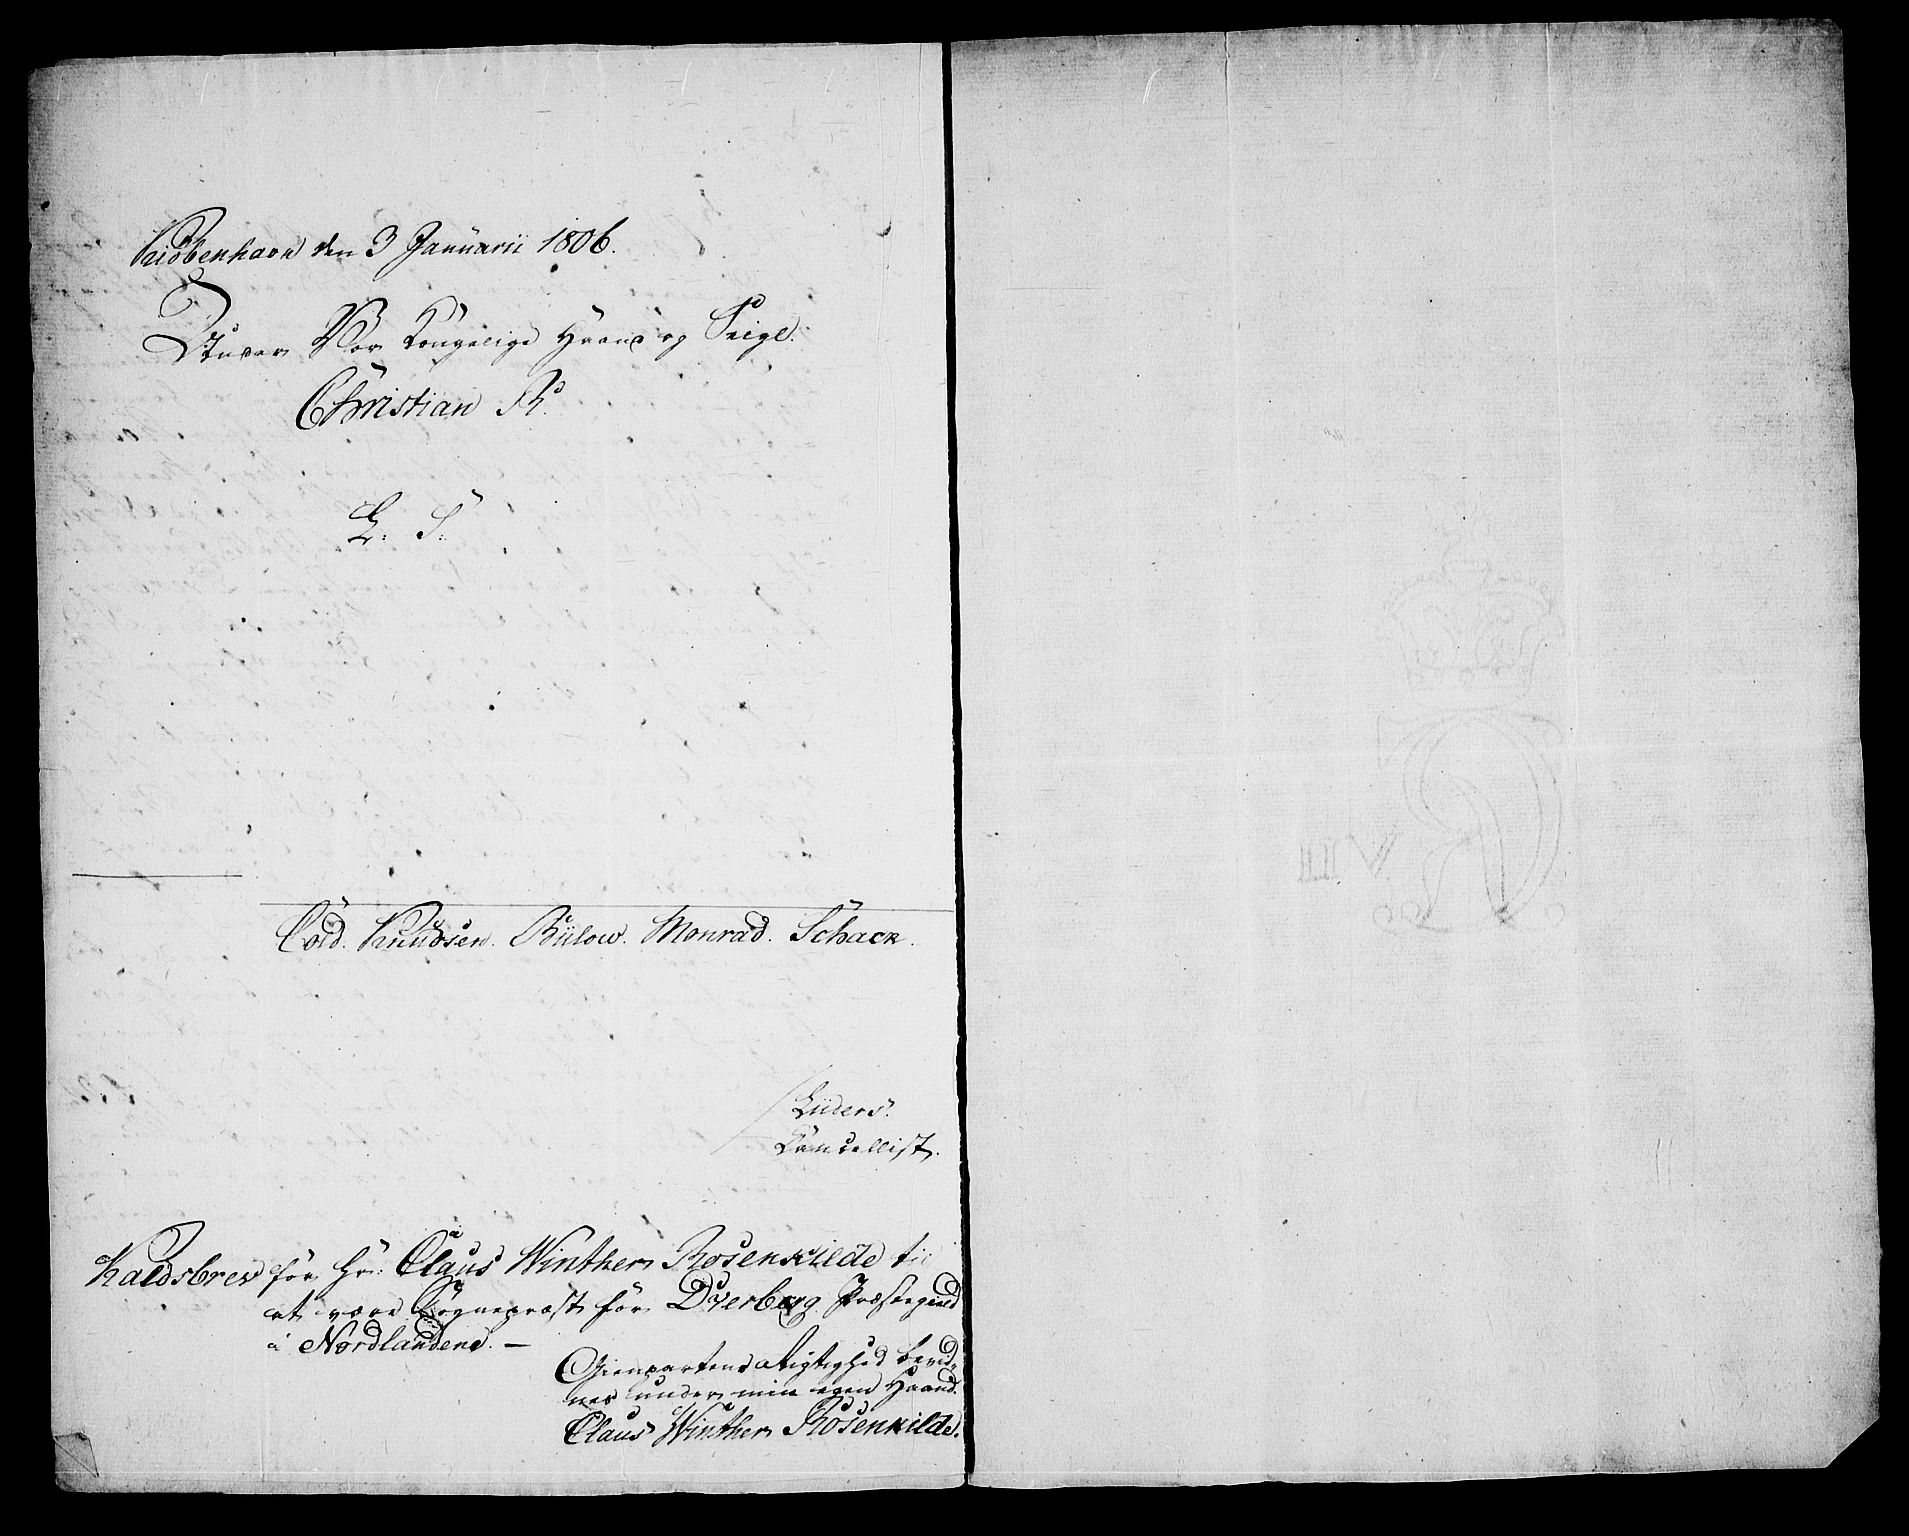 Kiöbenhavn den 3 Januarii 1806.
Under Vor Kongelige Haand og Seigl.
Christian R.
L. S.
Cold. Knudsen. Bülow. Monrad. Schack.
Lüders.
Cancellist.
Kaldsbrev for Hr: Claus Winther Rosenkilde til
at være Sognepræst for Dverberg Præstegield
i Nordlandene. —
Gienpartens rigtighed bevid-
nes under min egen Haand.
Claus Winther Rosenkilde.
VII